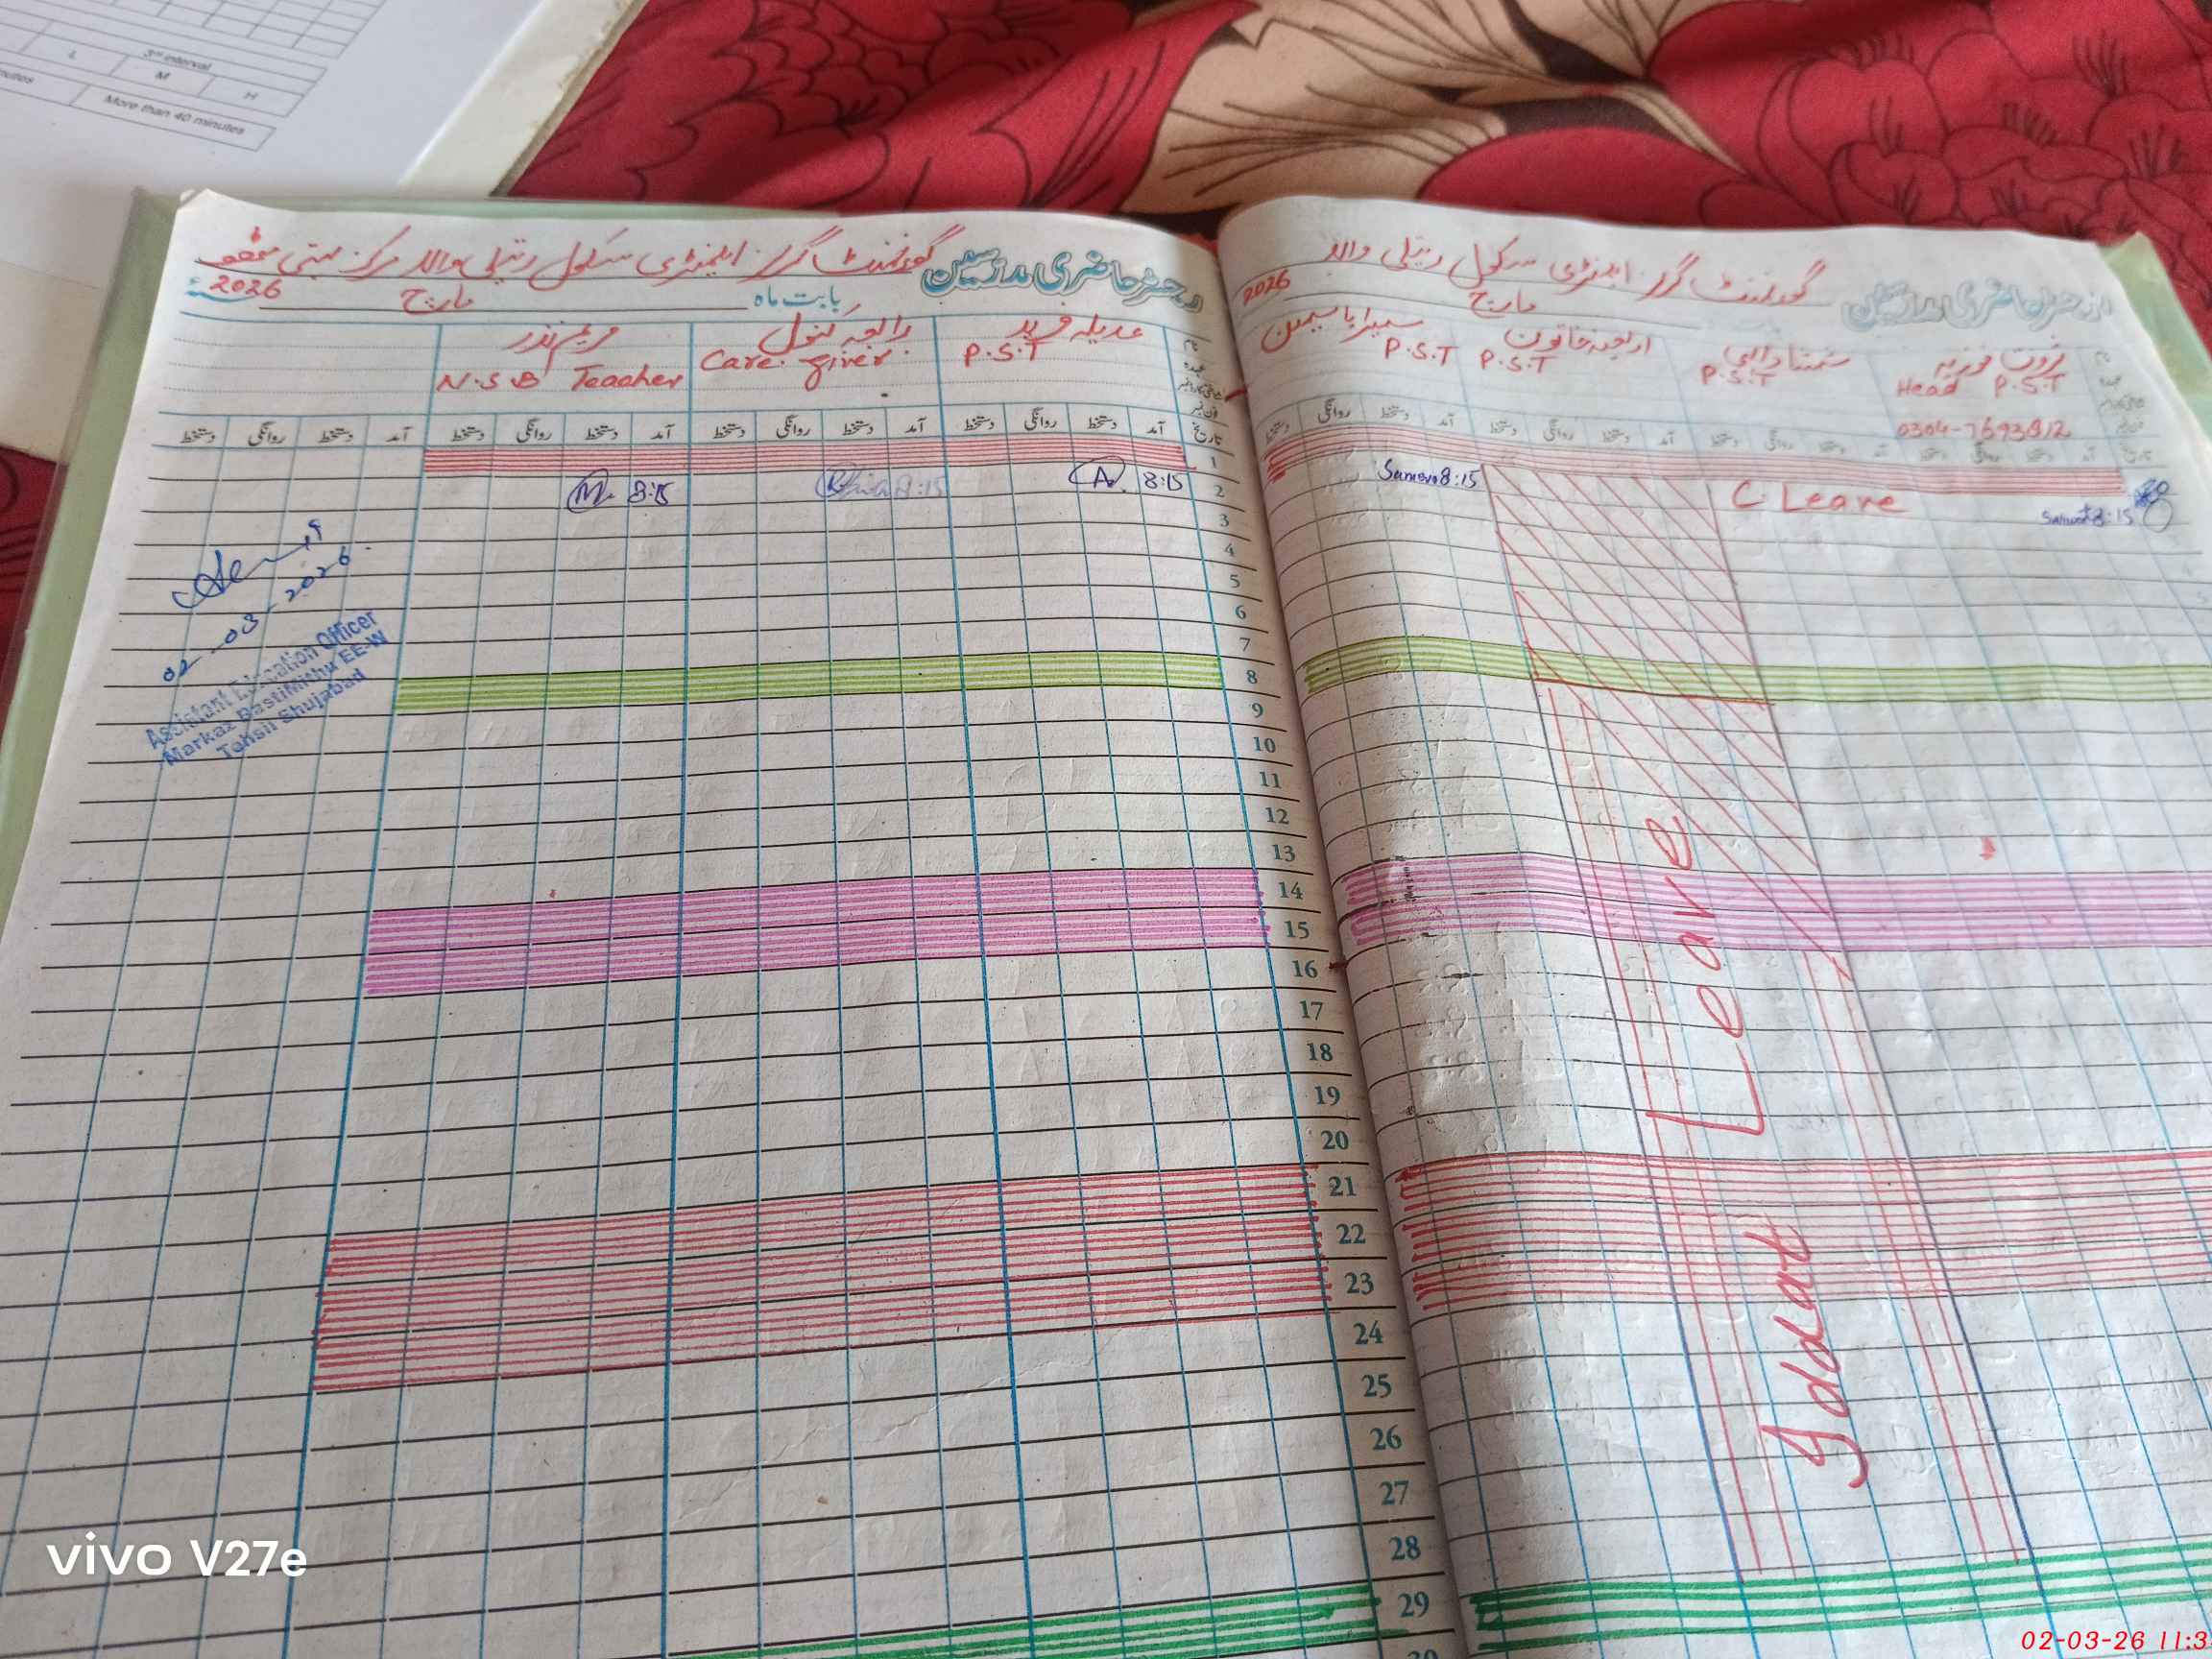 3rd interval
L M H
More than 40 minutes
رجسٹر حاضری مدرسین گورنمنٹ گرلز ایلمنٹری سکول رتیلی والہ مرکز بستی مٹھو
بابت ماہ مارچ 2026ء
عدیلہ فرید
P.S.T
رابعہ کنول
Care giver
مریم نذر
N.S.B Teacher
نام
عہدہ
فون نمبر
تاریخ
آمد دستخط روانگی دستخط آمد دستخط روانگی دستخط آمد دستخط روانگی دستخط آمد دستخط روانگی دستخط
1
2 8:15 A. 8:15 8:15 M.
3
4
5
6
7
8
9
10
11
12
13
14
15
16
17
18
19
20
21
22
23
24
25
26
27
28
29
30
02-03-2026
Assistant Education Officer
Markaz Bastimithu EE-W
Tehsil Shujabad
رجسٹر حاضری مدرسین گورنمنٹ گرلز ایلمنٹری سکول رتیلی والہ
مارچ 2026
ثروت فوزیہ
Head P.S.T
0304-7693812
P.S.T
خاتون
P.S.T
سمیرا یاسمین
P.S.T
آمد دستخط روانگی دستخط
8:15
C. Leave
8:15
Iddat Leave
vivo V27e
02-03-26 11:3